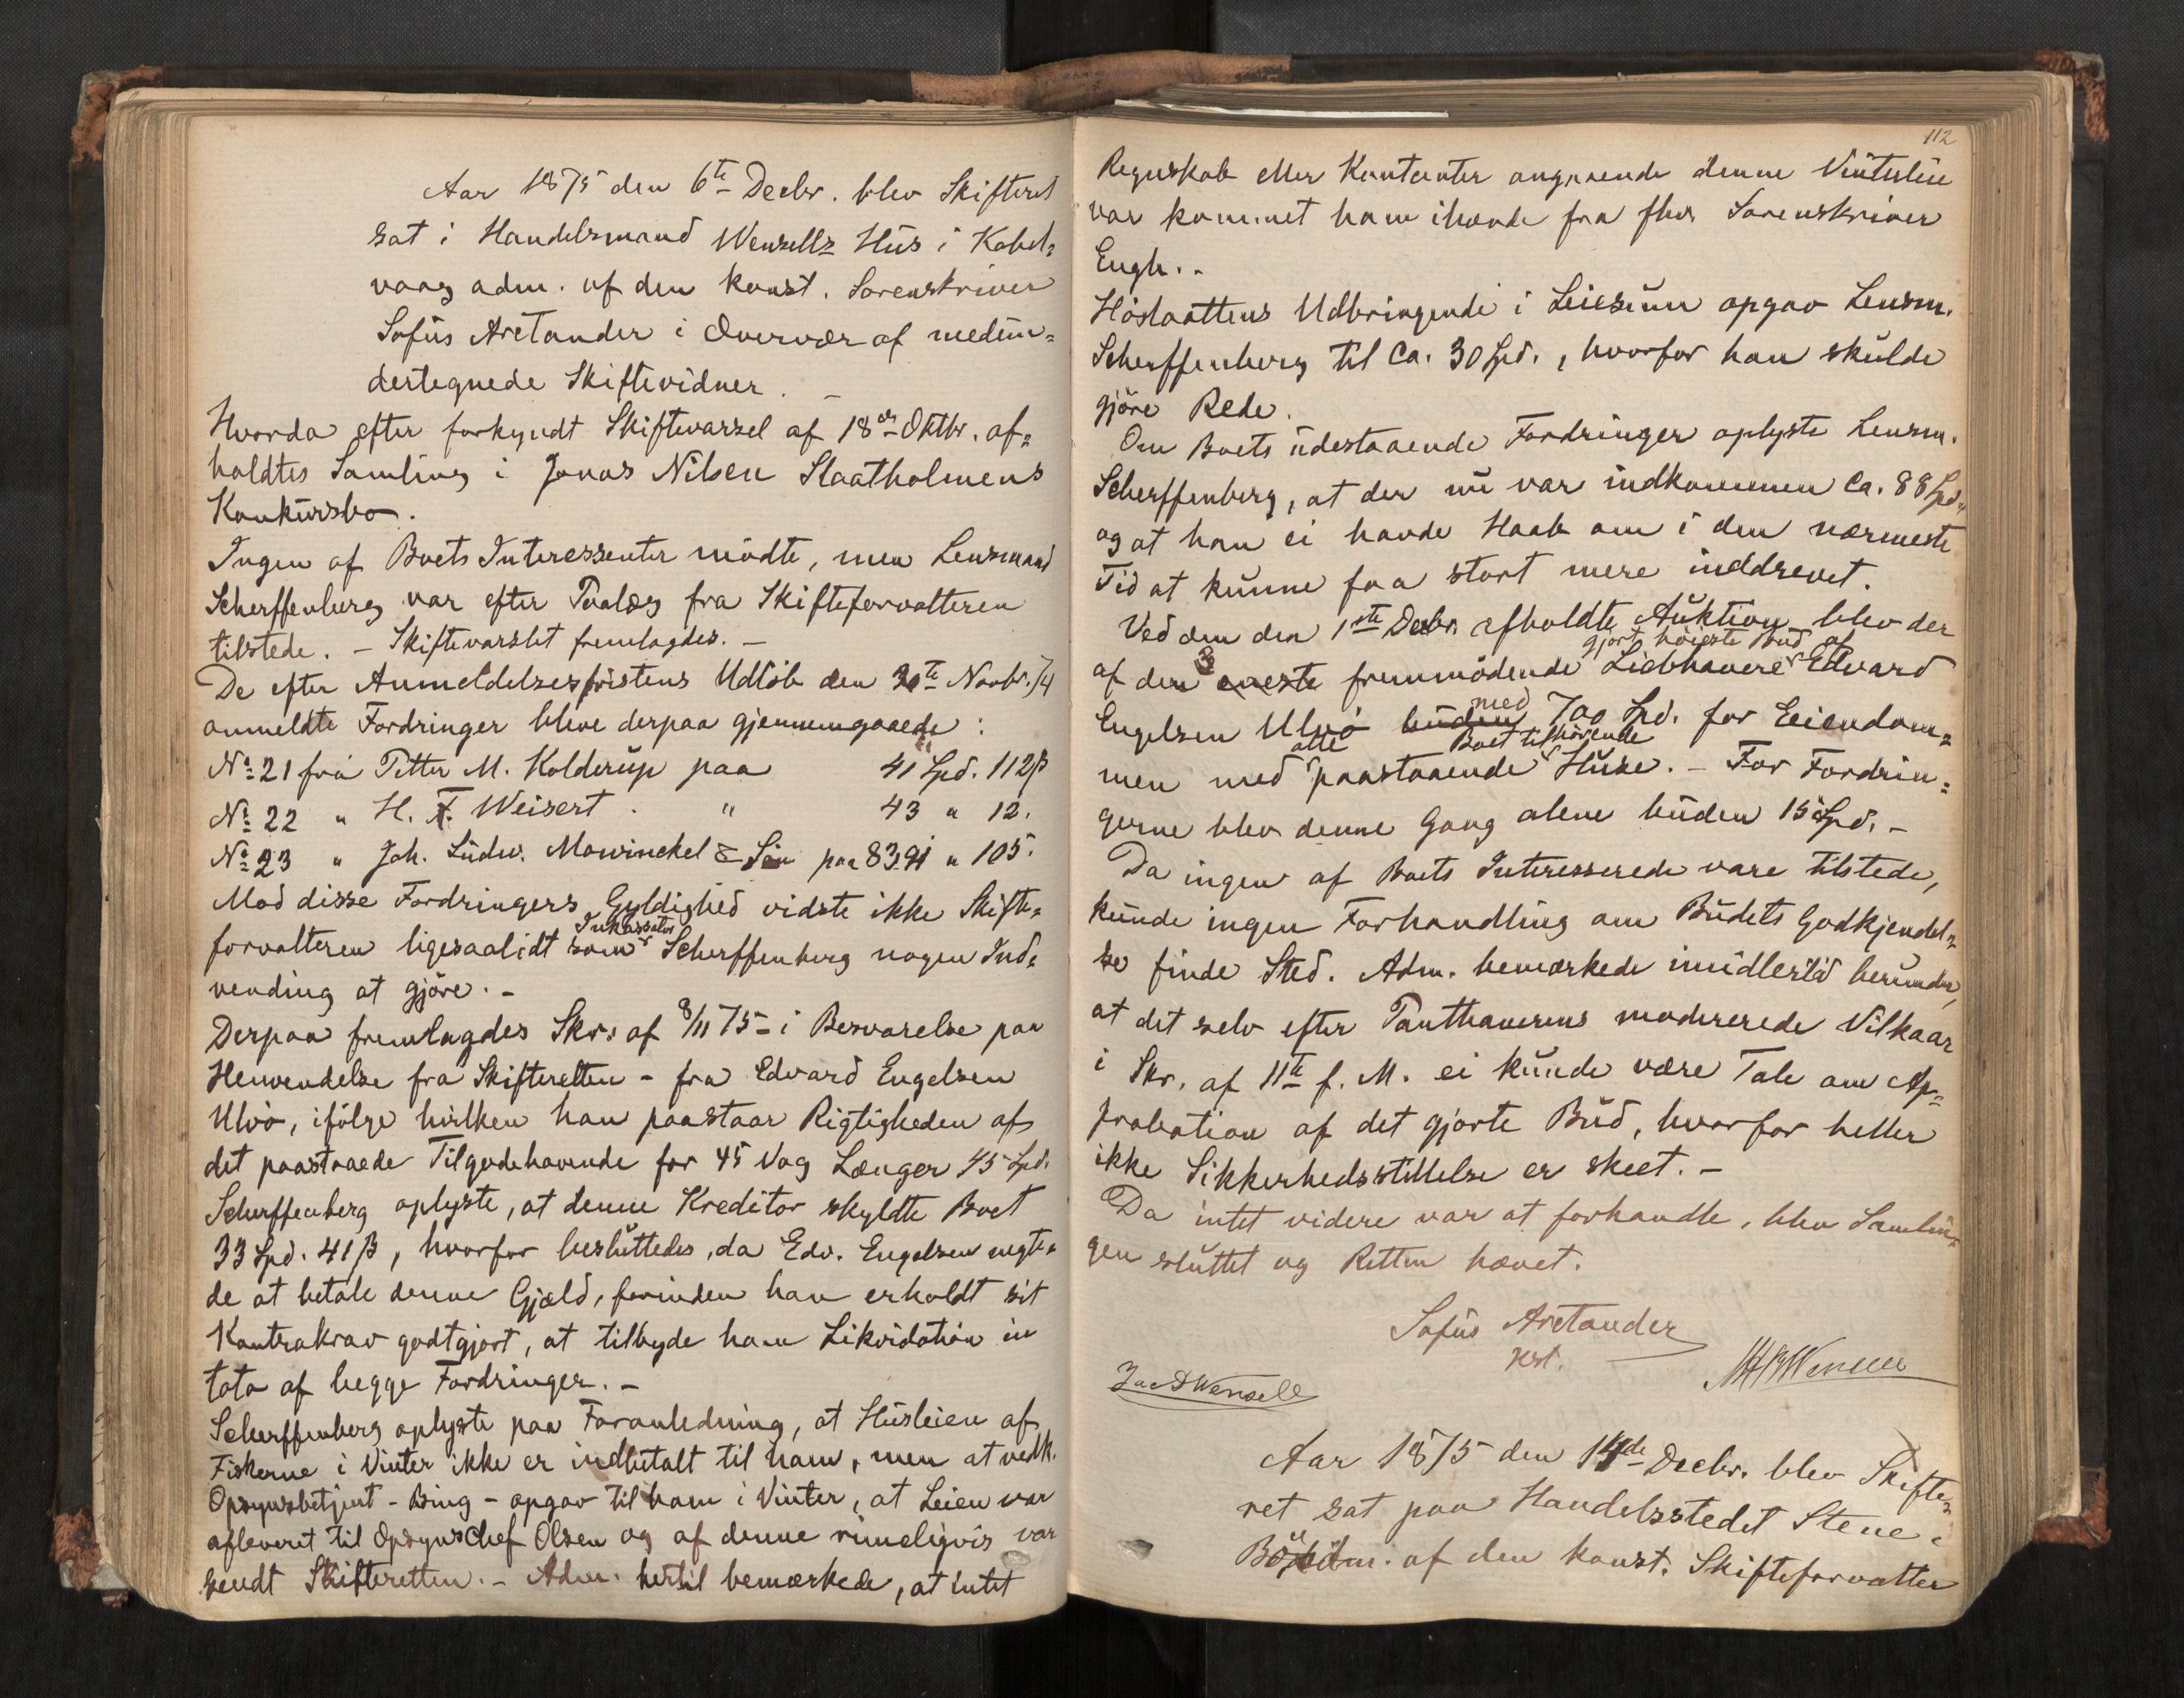 Aar 1875 den 6te Decbr. blev Skifteret
sat i Handelsmand Wensells Hus i Kabel=
vaag adm. af den konst. Sorenskriver
Sofus Arctander i Overvær af medun=
dertegnede Skiftevidner. –
Hvorda efter forkyndt Skiftevarsel af 18de Oktbr. af=
holdtes Samling i Jonas Nilsen Slaatholmens
Konkursbo.
Ingen af Boets Interessenter mödte, men Lensmand
Scherffenberg var efter Paalæg fra Skifteforvalteren
tilstede. – Skiftevarslet fremlagdes. –
De efter Anmeldelsesfristens Udlöb den 30te Novbr. 74
anmeldte Fordringer bleve derpaa gjennemgaaede:
No 21 fra Petter M. Kolderup paa 41 Spd. 112 ß
No 22 " H. F. Weisert " 43 " 12.
No 23 " Joh. Ludw. Mowinckel & Sön paa 8391 " 105.
Mod disse Fordringers Gyldighed vidste ikke Skifte=
forvalteren ligesaalidt som Inkassator Scherffenberg nogen Ind=
vending at gjöre. –
Derpaa fremlagdes Skr. af 8/11 75 – i Besvarelse paa
Henvendelse fra Skifteretten – fra Edvard Engelsen
Ulvö, ifölge hvilken han paastaar Rigtigheden af
det paastaaede Tilgodehavende for 45 Vog Længer 45 Spd.
Scherffenberg oplyste, at denne Kreditor skyldte Boet
33 Spd. 41 ß, hvorfor besluttedes, da Edv. Engelsen negte=
de at betale denne Gjæld, forinden han erholdt sit
Kontrakrav godtgjort, at tilbyde ham Likvidation in
toto af begge Fordringer. –
Scherffenberg oplyste paa Foranledning, at Husleien af
Fiskerne i Vinter ikke er indbetalt til ham, men at vedk.
Opsynsbetjent – Bing – opgav til ham i Vinter, at Leien var
afleveret til Opsynschef Olsen og af denne rimeligvis var
sendt Skifteretten. – Adm. hertil bemærkede, at intet
112
Regnskab eller Kontanter angaaende denne Vinterleie
var kommet ham ihænde fra fhv. Sorenskriver
Engh. –
Höslaattens Udbringende i Leiesum opgav Lensm.
Scherffenberg til Ca. 30 Spd., hvorfor han skulde
gjöre Rede.
Om Boets udestaaende Fordringer oplyste Lensm.
Scherffenberg, at der nu var indkommen Ca. 88 Spd.,
og at han ei havde Haab om i den nærmeste
Tid at kunne faa stort mere inddrevet.
Ved den den 1ste Decbr. afholdte Auktion blev der
af den eneste 3 fremmödende Liebhavere gjort höieste Bud af Edvard
Engelsen Ulvö buden med 700 Spd. for Eiendom=
men med alle paastaaende Boet tilhörende Huse. – For Fordrin=
gerne blev denne Gang alene buden 15 Spd. –
Da ingen af Boets Interesserede vare tilstede,
kunde ingen Forhandling om Budets Godkjendel=
se finde Sted. Adm. bemærkede imidlertid herunder,
at det selv efter Panthaverens modererede Vilkaar
i Skr. af 11te f. M. ei kunde være Tale om Ap=
probation af det gjorte Bud, hvorfor heller
ikke Sikkerhedsstillelse er skeet. –
Da intet videre var at forhandle, blev Samlin=
gen sluttet og Retten hævet.
Sofus Arctander
kst.
Jac D Wensell
Aar 1875 den 14de Decbr. blev Skifte=
ret sat paa Handelsstedet Stene i
Bö adm. af den konst. Skifteforvalter